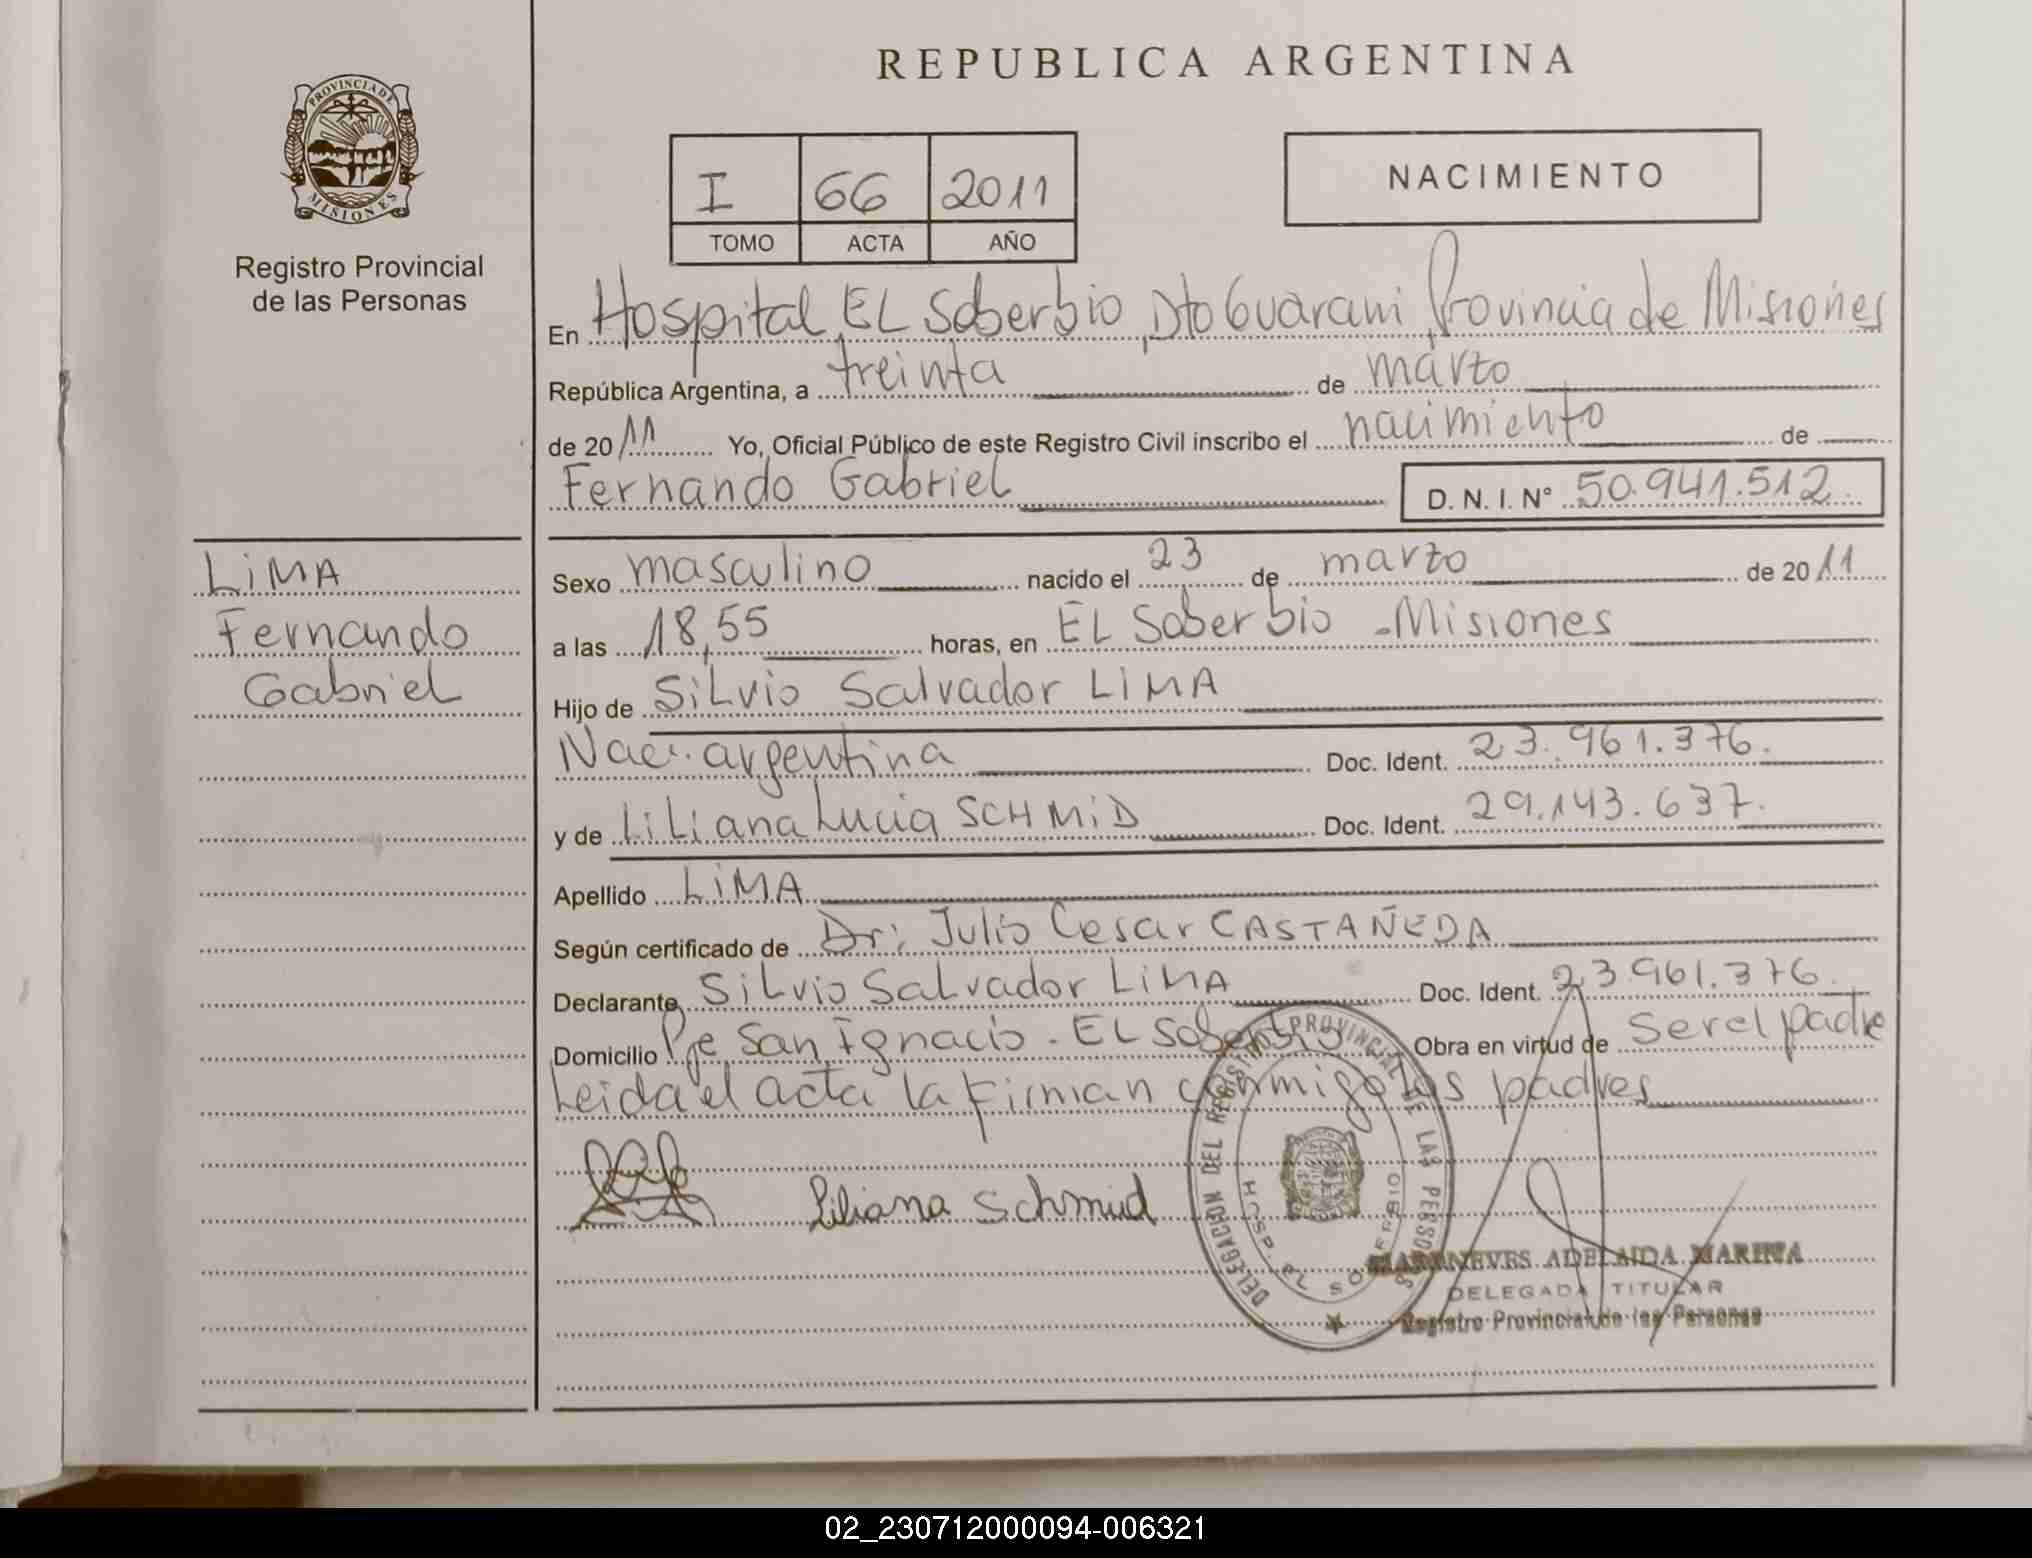 REPUBLICA ARGENTINA
PROVINCIA DE MISIONES
Registro Provincial
de las Personas
I 66 2011
TOMO ACTA AÑO
NACIMIENTO
En Hospital EL Soberbio, Dto Guarani, Provincia de Misiones
República Argentina, a treinta de marzo
de 2011 Yo, Oficial Público de este Registro Civil inscribo el nacimiento de
Fernando Gabriel D. N. I. N° 50.941.512.
LiMA
Fernando
Gabriel
Sexo masculino nacido el 23 de marzo de 2011
a las 18,55 horas, en EL Soberbio - Misiones
Hijo de SiLvio Salvador LiMA
Nac. argentina Doc. Ident. 23.961.376.
y de LiLiana Lucia SCHMiD Doc. Ident. 29.143.637.
Apellido LiMA
Según certificado de Dr: Julio Cesar CASTAÑEDA
Declarante SiLvio SaLvador LiMA Doc. Ident. 23.961.376.
Domicilio Pje San Ignacio - EL Soberbio Obra en virtud de ser el padre
Leida el acta la firman conmigo los padres
Liliana Schmid
DELEGACION DEL REGISTRO PROVINCIAL DE LAS PERSONAS
HOSP. EL SOBERBIO
ADELAIDA MARINA
DELEGADA TITULAR
Registro Provincial de las Personas
02_230712000094-006321